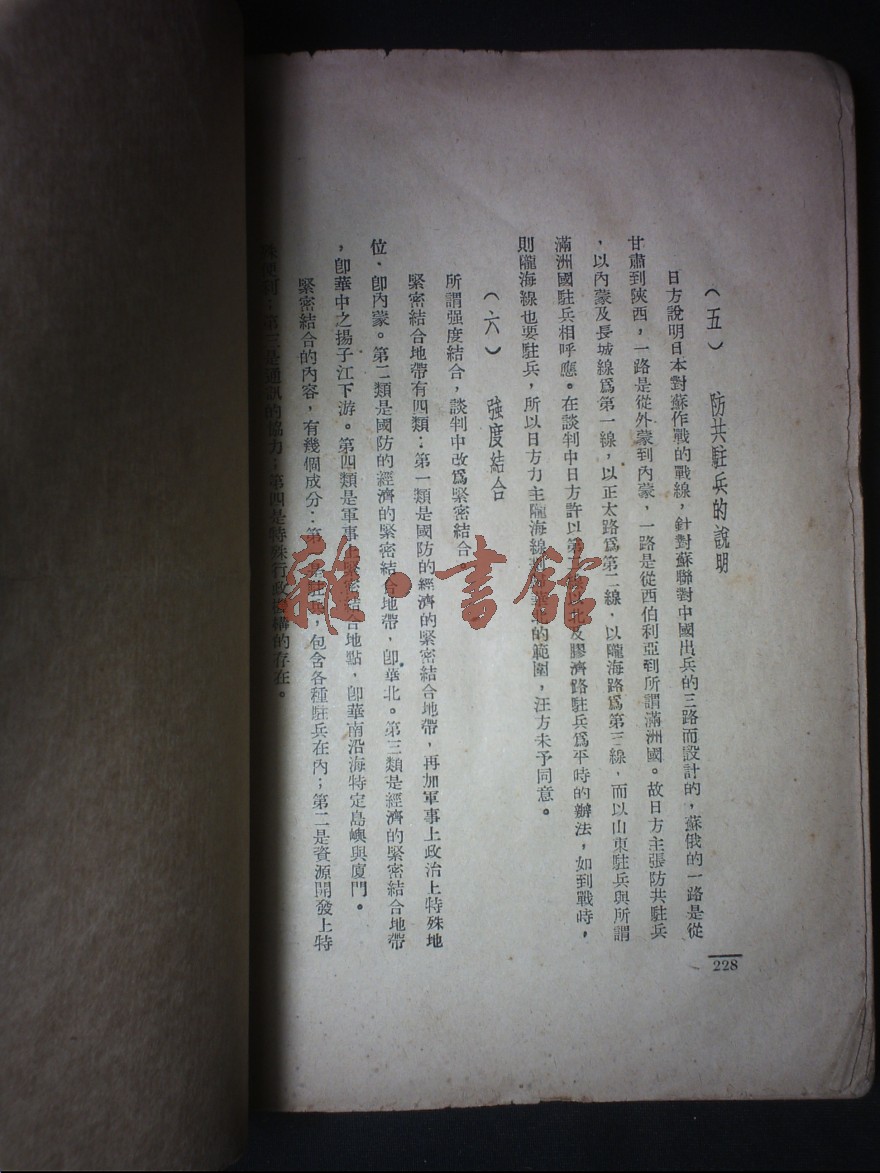 （五） 防共駐兵的說明
日方說明日本對蘇作戰的戰線，針對蘇聯對中國出兵的三路而設計的，蘇俄的一路是從
甘肅到陝西，一路是從外蒙到內蒙，一路是從西伯利亞到所謂滿洲國。故日方主張防共駐兵
，以內蒙及長城線爲第一線，以正太路爲第二線，以隴海路爲第三線，而以山東駐兵與所謂
滿洲國駐兵相呼應。在談判中日方許以第以北及膠濟路駐兵爲平時的辦法，如到戰時，
則隴海線也要駐兵，所以日方力主隴海線北的範圍，汪方未予同意。
（六） 強度結合
所謂强度結合，談判中改爲緊密結合
緊密結合地帶有四類：第一類是國防的經濟的緊密結合地帶，再加軍事上政治上特殊地
位，卽內蒙。第二類是國防的經濟的緊密結合地帶，卽華北。第三類是經濟的緊密結合地帶
，卽華中之揚子江下游。第四類是軍事上緊密結合地點，卽華南沿海特定島嶼與廈門。
緊密結合的內容，有幾個成分：第一是駐兵，包含各種駐兵在內；第二是資源開發上特
殊便利；第三是通訊的協力；第四是特殊行政機構的存在。
228
雜·書館